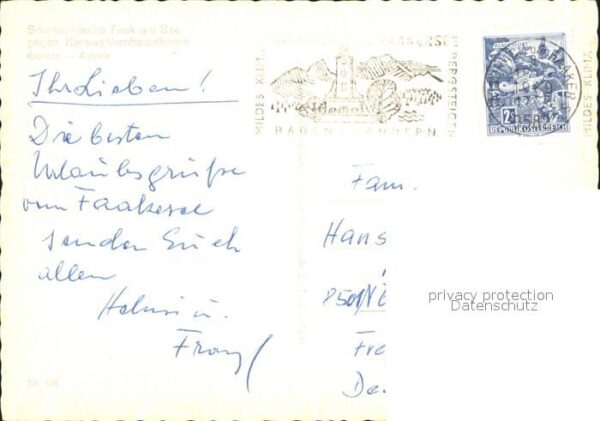 Sommerfrische Faak am See
gegen Karawankenhauptkamm
Kärnten — Austria
Ihr Lieben!
Die besten
Urlaubsgrüße
vom Faakersee
senden Euch
allen
u.
Franz
Nr. 106
MILDES KLIMA
FAAKERSEE
BERGSTEIGEN
BADEN WANDERN
2
REPUBLIK ÖSTERREICH
MILDES KLIMA
Fam.
Hans
Fre
De
privacy protection
Datenschutz